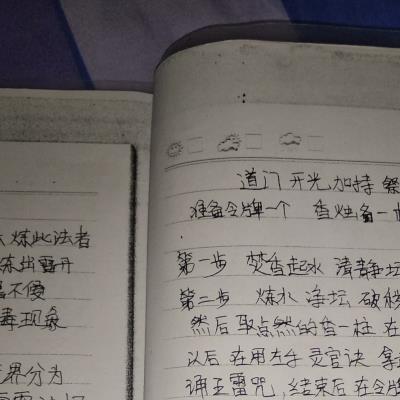 炼此法者
炼出雷开
不傻
毒现象
界分为
道门 开光 加持
准备令牌一个 香烛各一
第一步 焚香起水 清静坛
第二步 炼水 净坛 破秽
然后 取点然的香一柱 在
以后 在用左手 灵官诀 拿
诵玉雷咒,结束后 在令牌